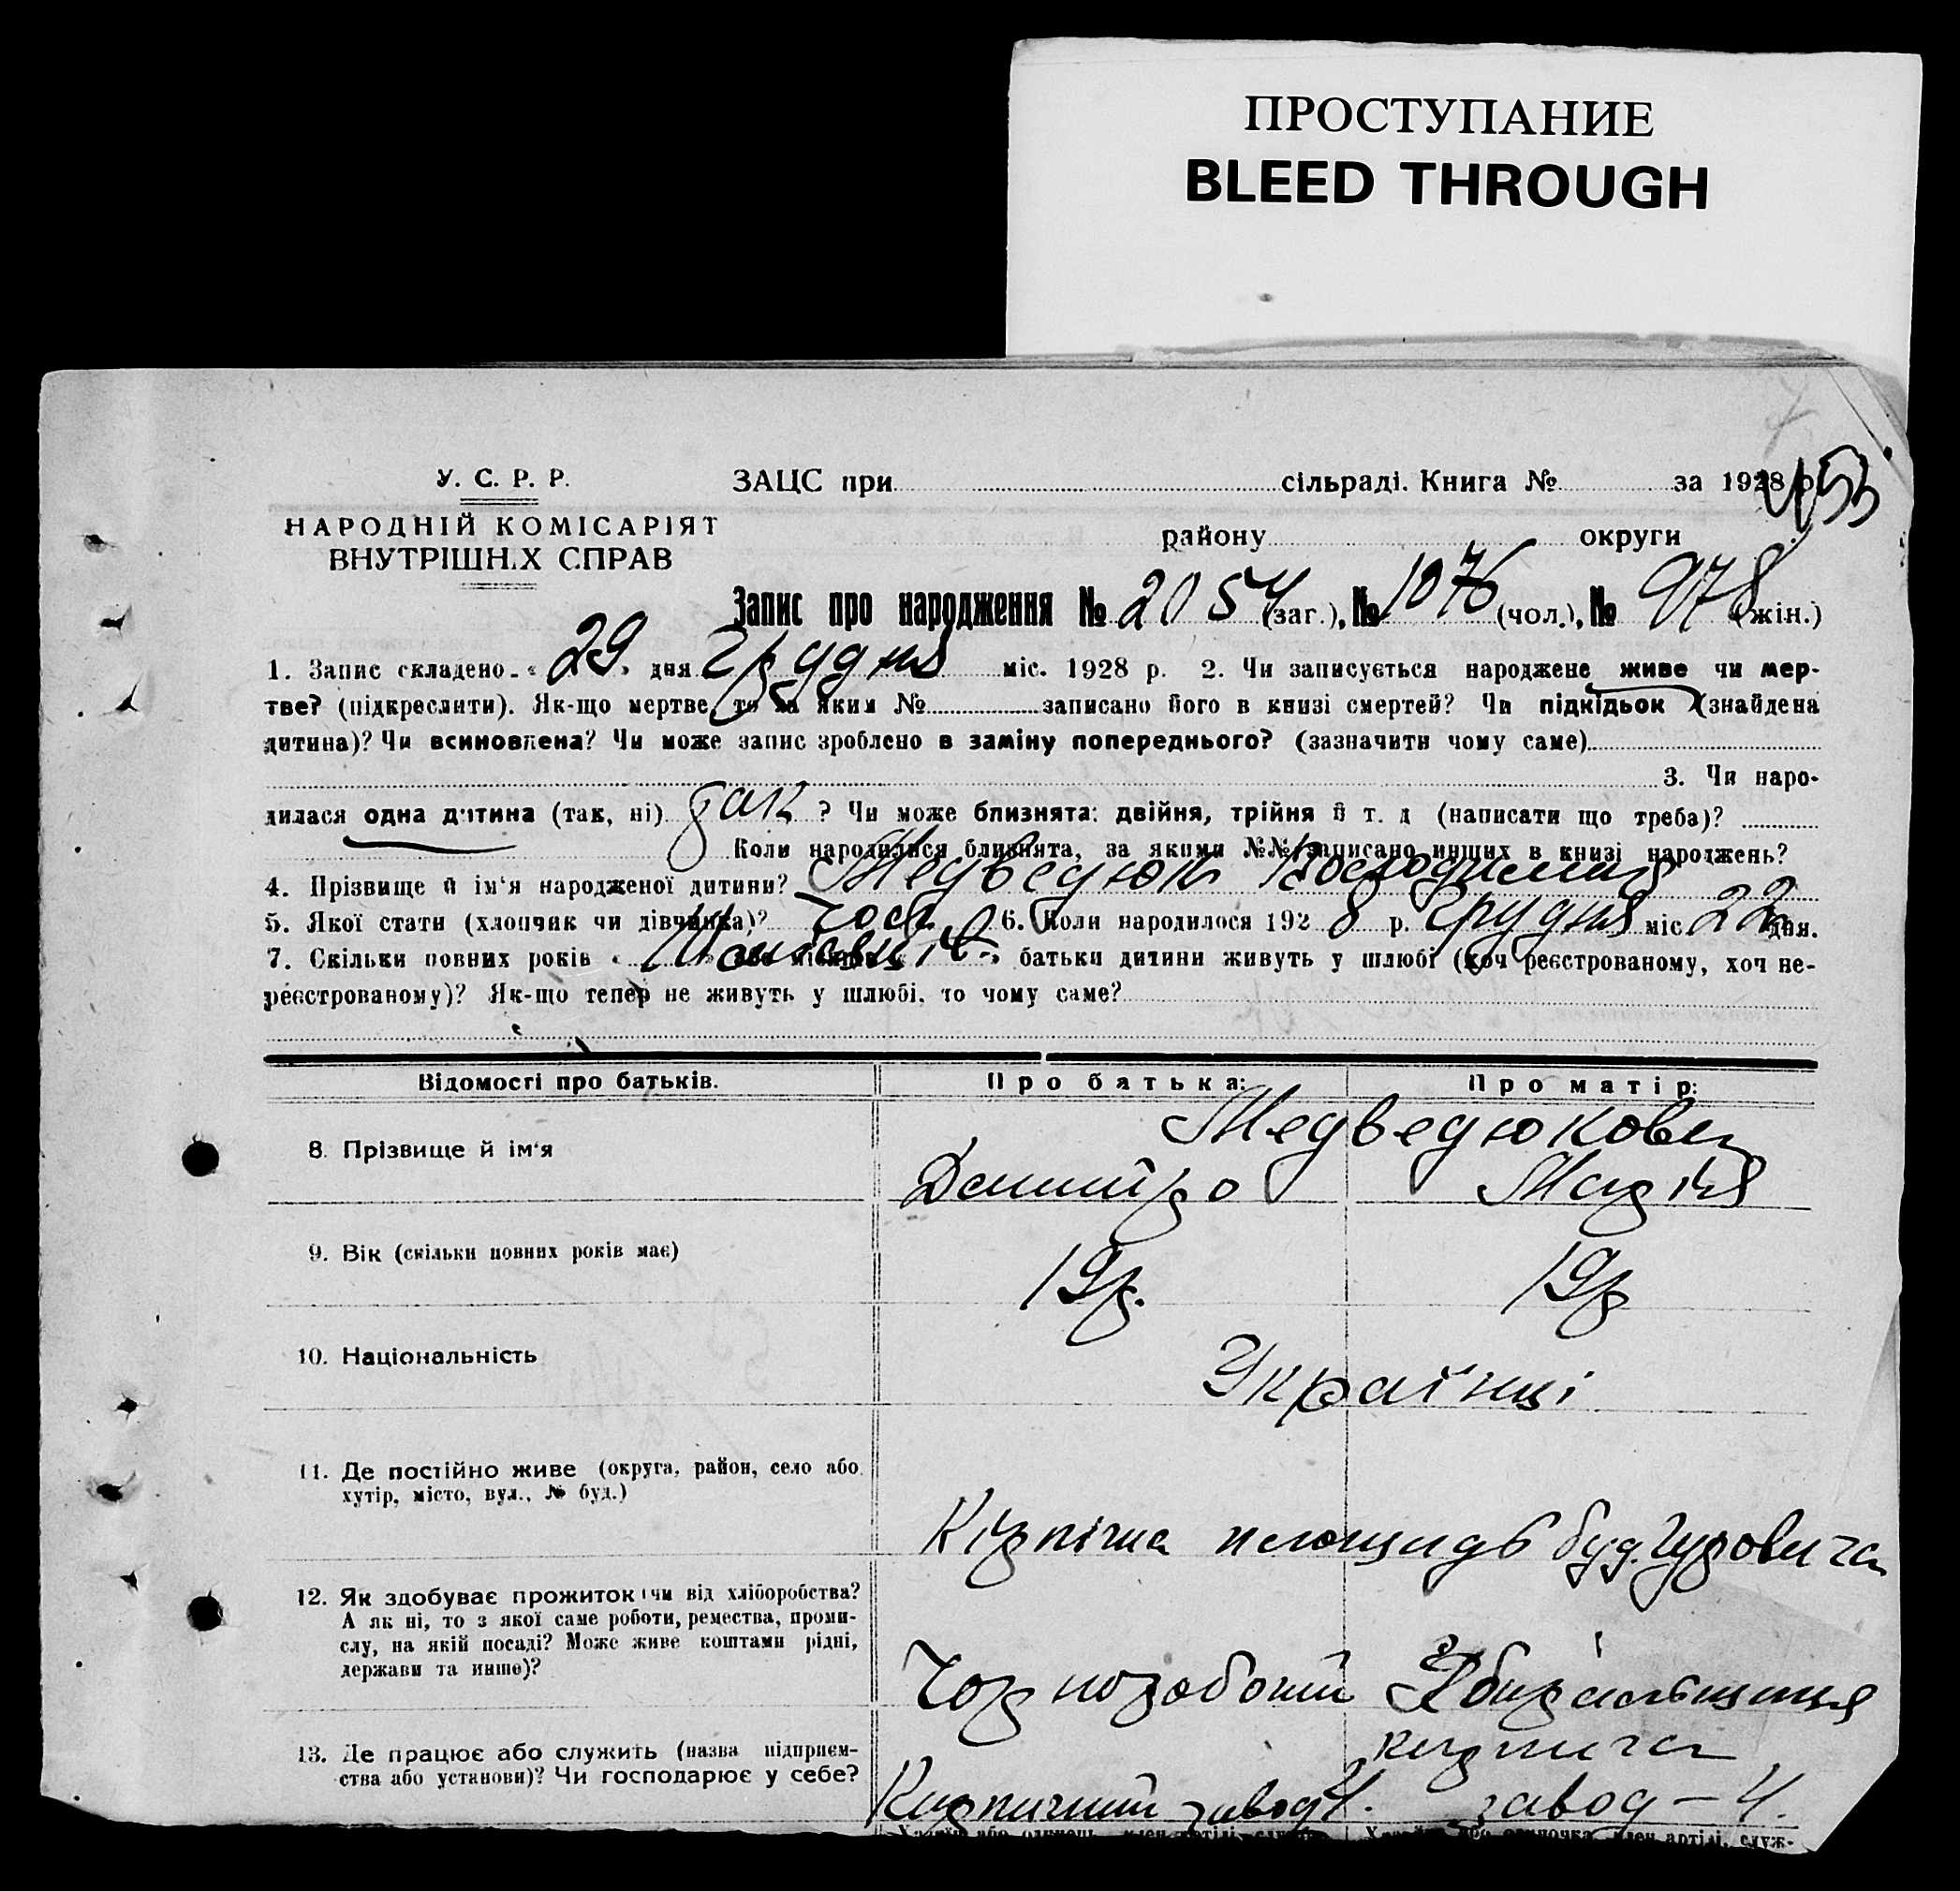 ПРОСТУПАНИЕ
BLEED THROUGH
У. С. Р. Р. ЗАЦС при сільраді. Книга № за 1928 р.
НАРОДНІЙ КОМІСАРІЯТ
району округи
ВНУТРІШНІХ СПРАВ
Запис про народження № 2054 (заг.), № 1076 (чол.), № 978 (жін.)
1. Запис складено „ 29 " дня Грудня міс. 1928 р. 2. Чи записується народжене живе чи мер-
тве? (підкреслити). Як-що мертве, то за яким № записано його в книзі смертей? Чи підкідьок (знайдена
дитина)? Чи всиновлена? Чи може запис зроблено в заміну попереднього? (зазначити чому саме)
3. Чи наро-
дилася одна дитина (так, ні) так ? Чи може близнята: двійня, трійня й т. д (написати що треба)?
Коли народилися близнята, за якими №№ записано инших в книзі народжень?
4. Прізвище й ім'я народженої дитини? Медведюк
5. Якої стати (хлопчик чи дівчинка)? Чол. 6. Коли народилося 192 8 р. Грудня міс. 22 дня.
7. Скільки повних років « » батьки дитини живуть у шлюбі (хоч реєстрованому, хоч не-
реєстрованому)? Як-що тепер не живуть у шлюбі, то чому саме?
Відомості про батьків. Про батька: Про матір:
Медведюкови
8. Прізвище й ім'я
Дмитро Марія
9. Вік (скільки повних років має)
19р. 19р
10. Національність
Українці
11. Де постійно живе (округа, район, село або
хутір, місто, вул., № буд.)
Кірпічна площадь буд. Гуровича
12. Як здобуває прожиток: чи від хліборобства?
А як ні, то з якої саме роботи, ремества, проми-
слу, на якій посаді? Може живе коштами рідні,
держави та инше)?
Чорноробочий Збиральщиця
кирпича
13. Де працює або служить (назва підприєм-
ства або установи)? Чи господарює у себе?
Кирпичний завод 4. завод - 4.
Хазяїн або одинець, член артілі,
член артілі, служ-